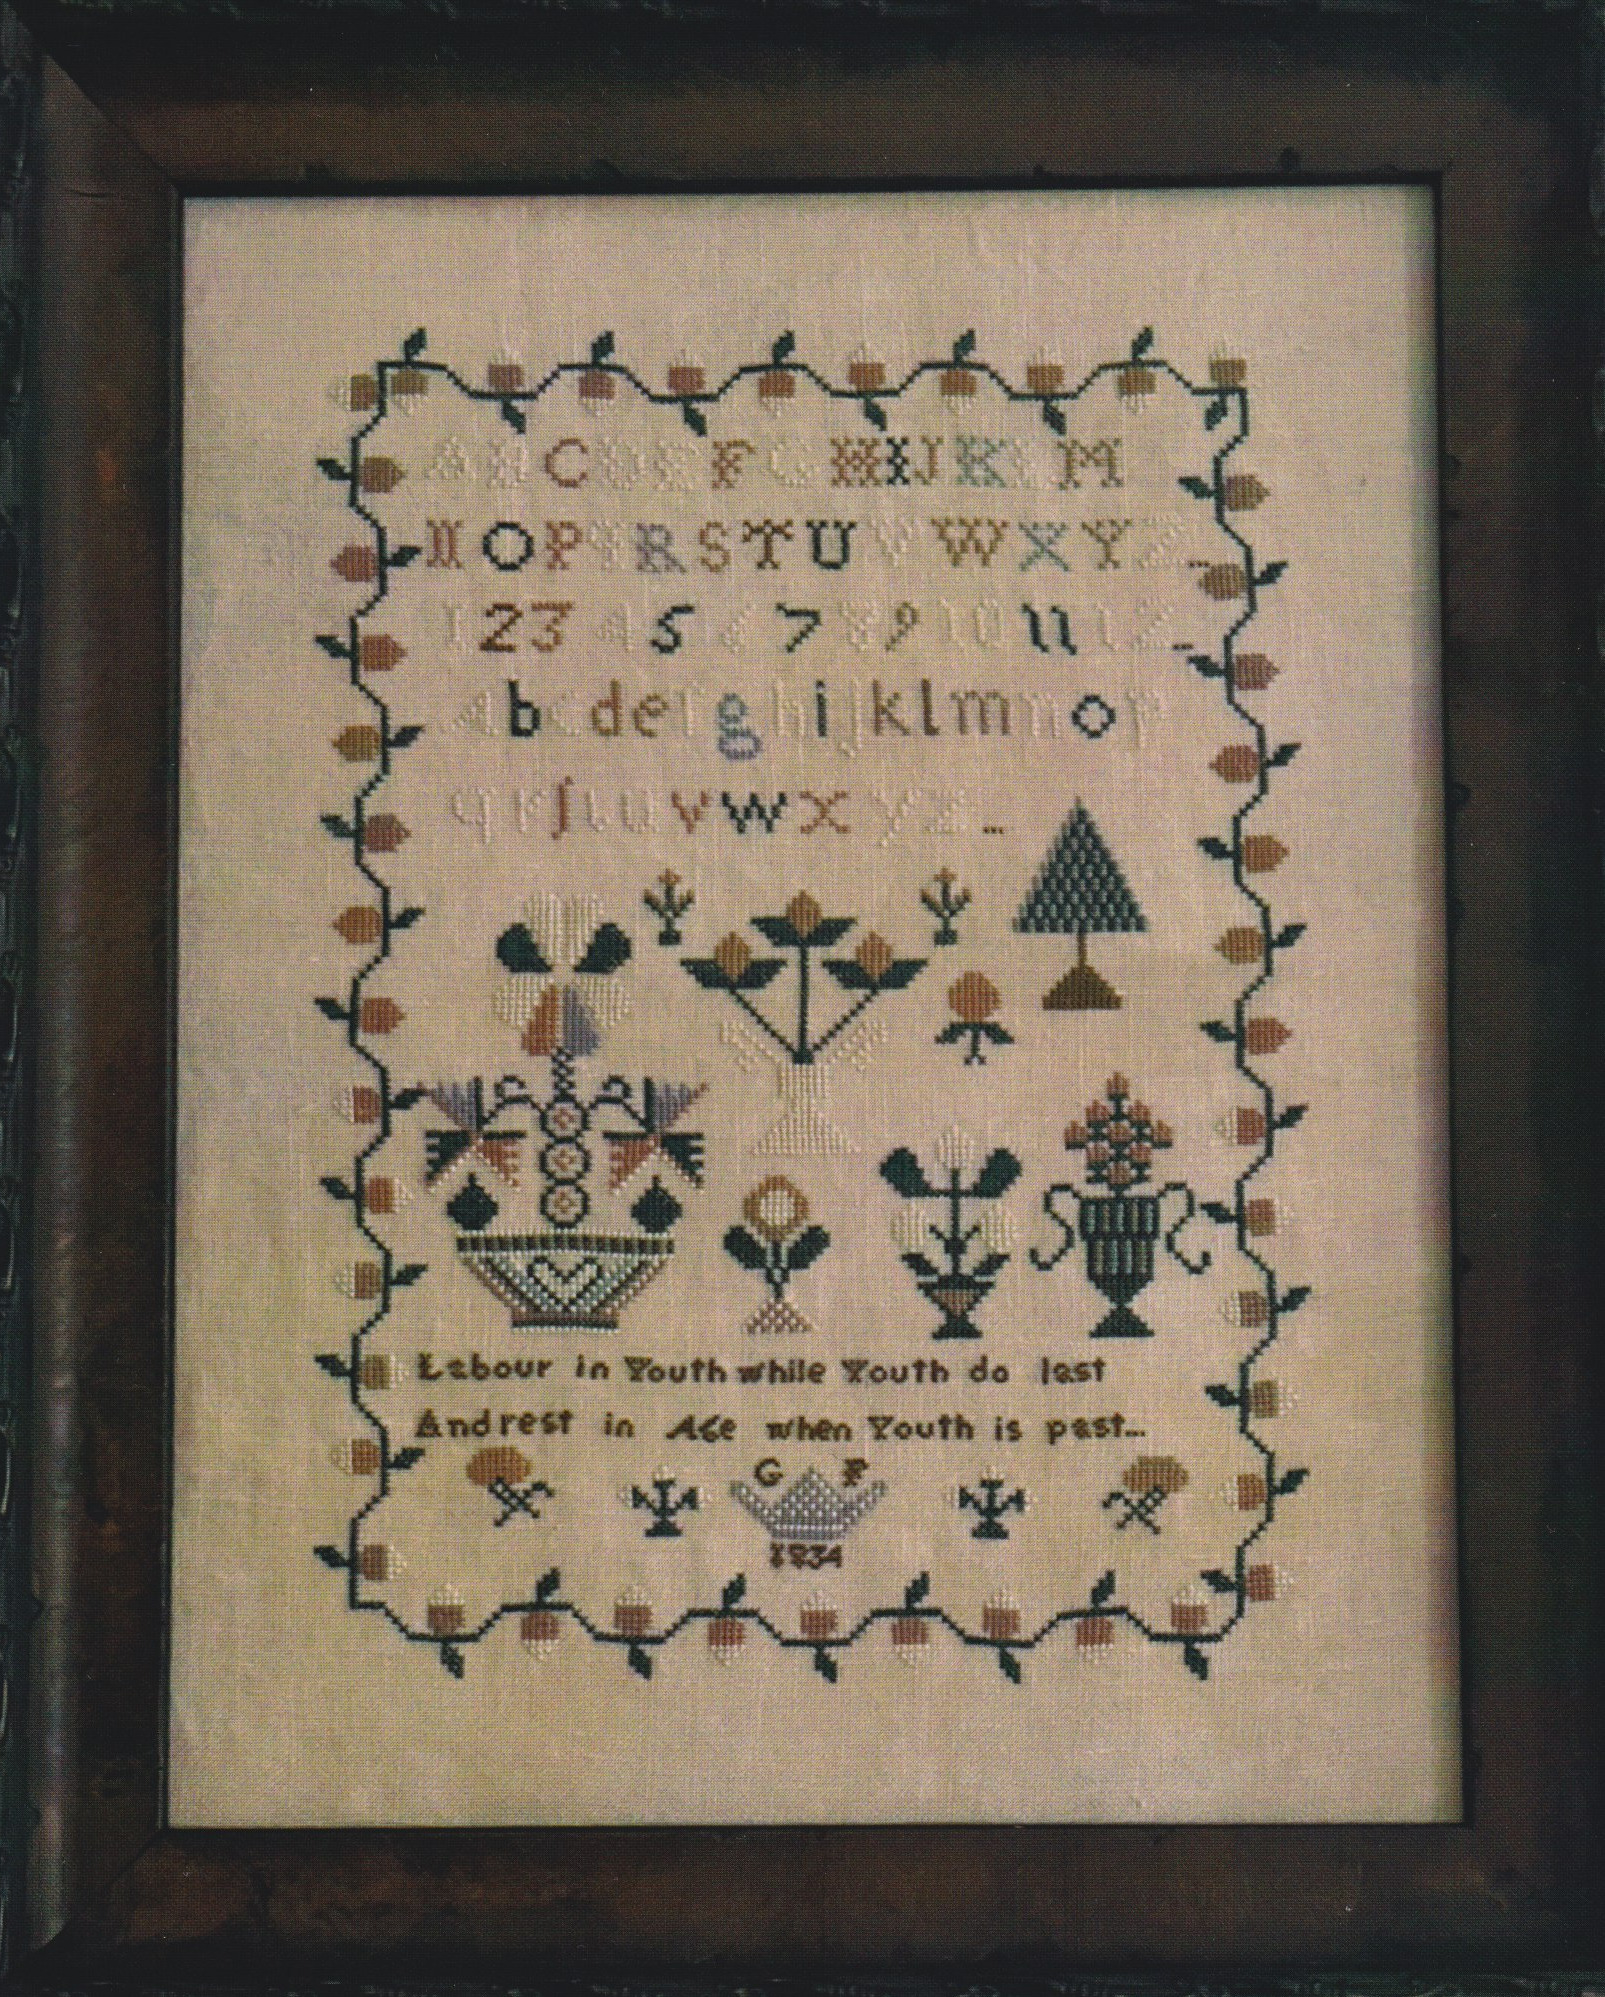 ABCDEFGHIJKLM
NOPQRSTUVWXYZ..
1 2 3 4 5 6 7 8 9 10 11 12..
Abcdefghijklmnop
qrſtuvwxyz...
Labour in Youth while Youth do last
And rest in Age when Youth is past...
G F
1834